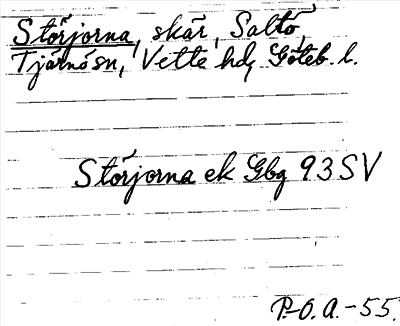 Störjorna, skär, Saltö,
Tjärnö sn, Vette hd, Göteb. l.
Störjorna ek Gbg 93 SV
P.-O.A.-55.